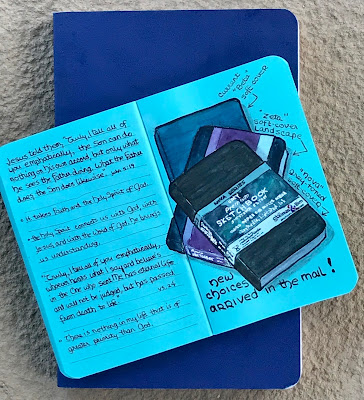 Jesus told them, "Truly, I tell all of
you emphatically, the Son can do
nothing on his own accord, but only what
He sees the Father doing. What the Father
does, the Son does likewise." John 5:19
• It takes Faith and the Holy Spirit of God.
• The Holy Spirit connects us with God, with
Jesus, and with the word of God. He brings
us understanding.
"Truly, I tell all of you emphatically,
whoever hears what I say and believes
in the One who sent Me has eternal life
and will not be judged, but has passed
from death to life." vs. 24
• There is nothing in my life that is of
greater priority than God.
current
"Beta"
softcover
"Zeta"
soft-cover
Landscape
"Nova"
SKETCH BOOK
new
choices
arrived in the mail!